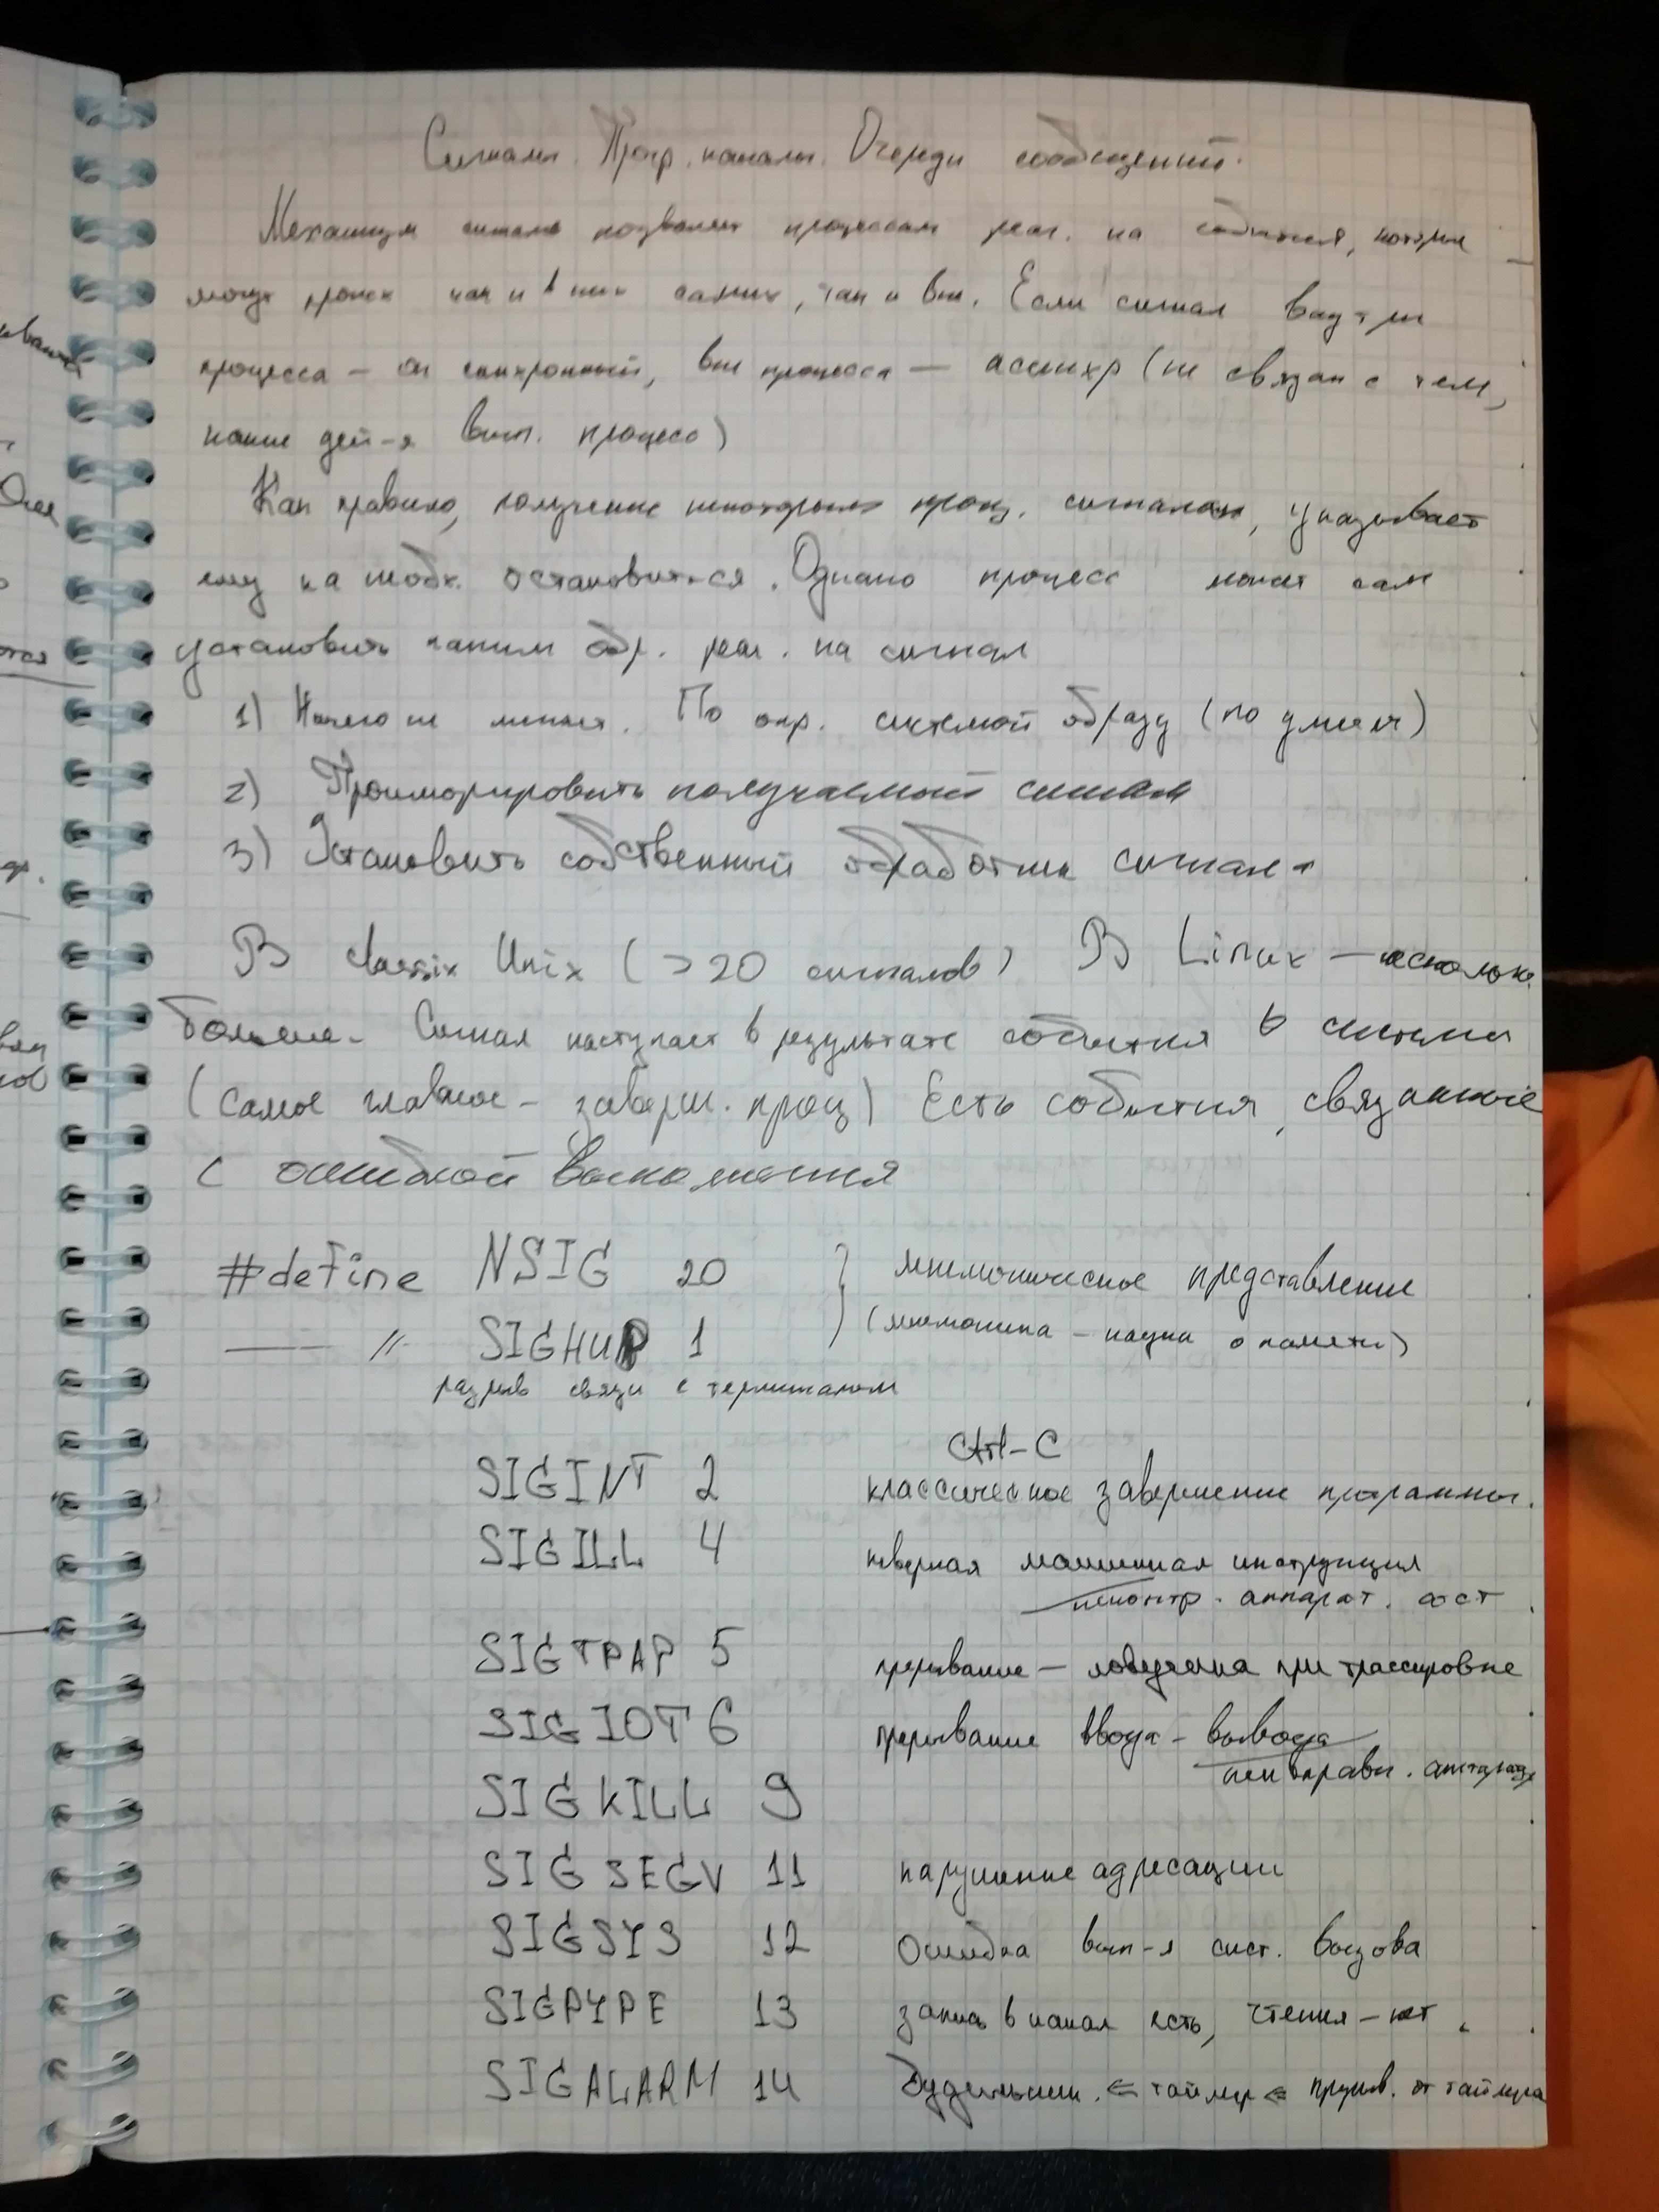 Сигналы. Прогр. каналы. Очереди сообщений.
Механизм сигналов позволяет процессам реаг. на события, которые
могут произ как и в них самих, так и вне. Если сигнал внутри
процесса – он синхронный, вне процесса — асинхр (не связан с тем,
какие дей-я вып. процесс)
Как правило, получение некоторых проц. сигналом, указывает
ему на необх. остановиться. Однако процесс может сам
установить каким обр. реаг. на сигнал
1) Ничего не меняет. По опр. системой образу (по умолч)
2) Проигнорировать получаемый сигнал
3) Установить собственный обработчик сигнала
В classix Unix (>20 сигналов) В Linux – несколько
больше. Сигнал наступает в результате события в системе
(самое главное – заверш. проц) Есть события, связанные
с ошибкой выполнения
#define NSIG 20 } мнемоническое представление
—— // SIGHUP 1 (мнемоника – наука о памяти)
разрыв связи с терминалом
Ctrl-C
SIGINT 2 классическое завершение программы.
SIGILL 4 неверная машинная инструкция
аппарат. ост
SIGTRAP 5 прерывание – ловушка при трассировке
SIGIOT 6 прерывание ввода-вывода
неисправн. аппарат
SIGKILL 9
SIGSEGV 11 нарушение адресации
SIGSYS 12 Ошибка вып-я сист. вызова
SIGPYPE 13 запись в канал есть, чтения – нет.
SIGALARM 14 Будильник. ⇐ таймер ⇐ прерыв. от таймера